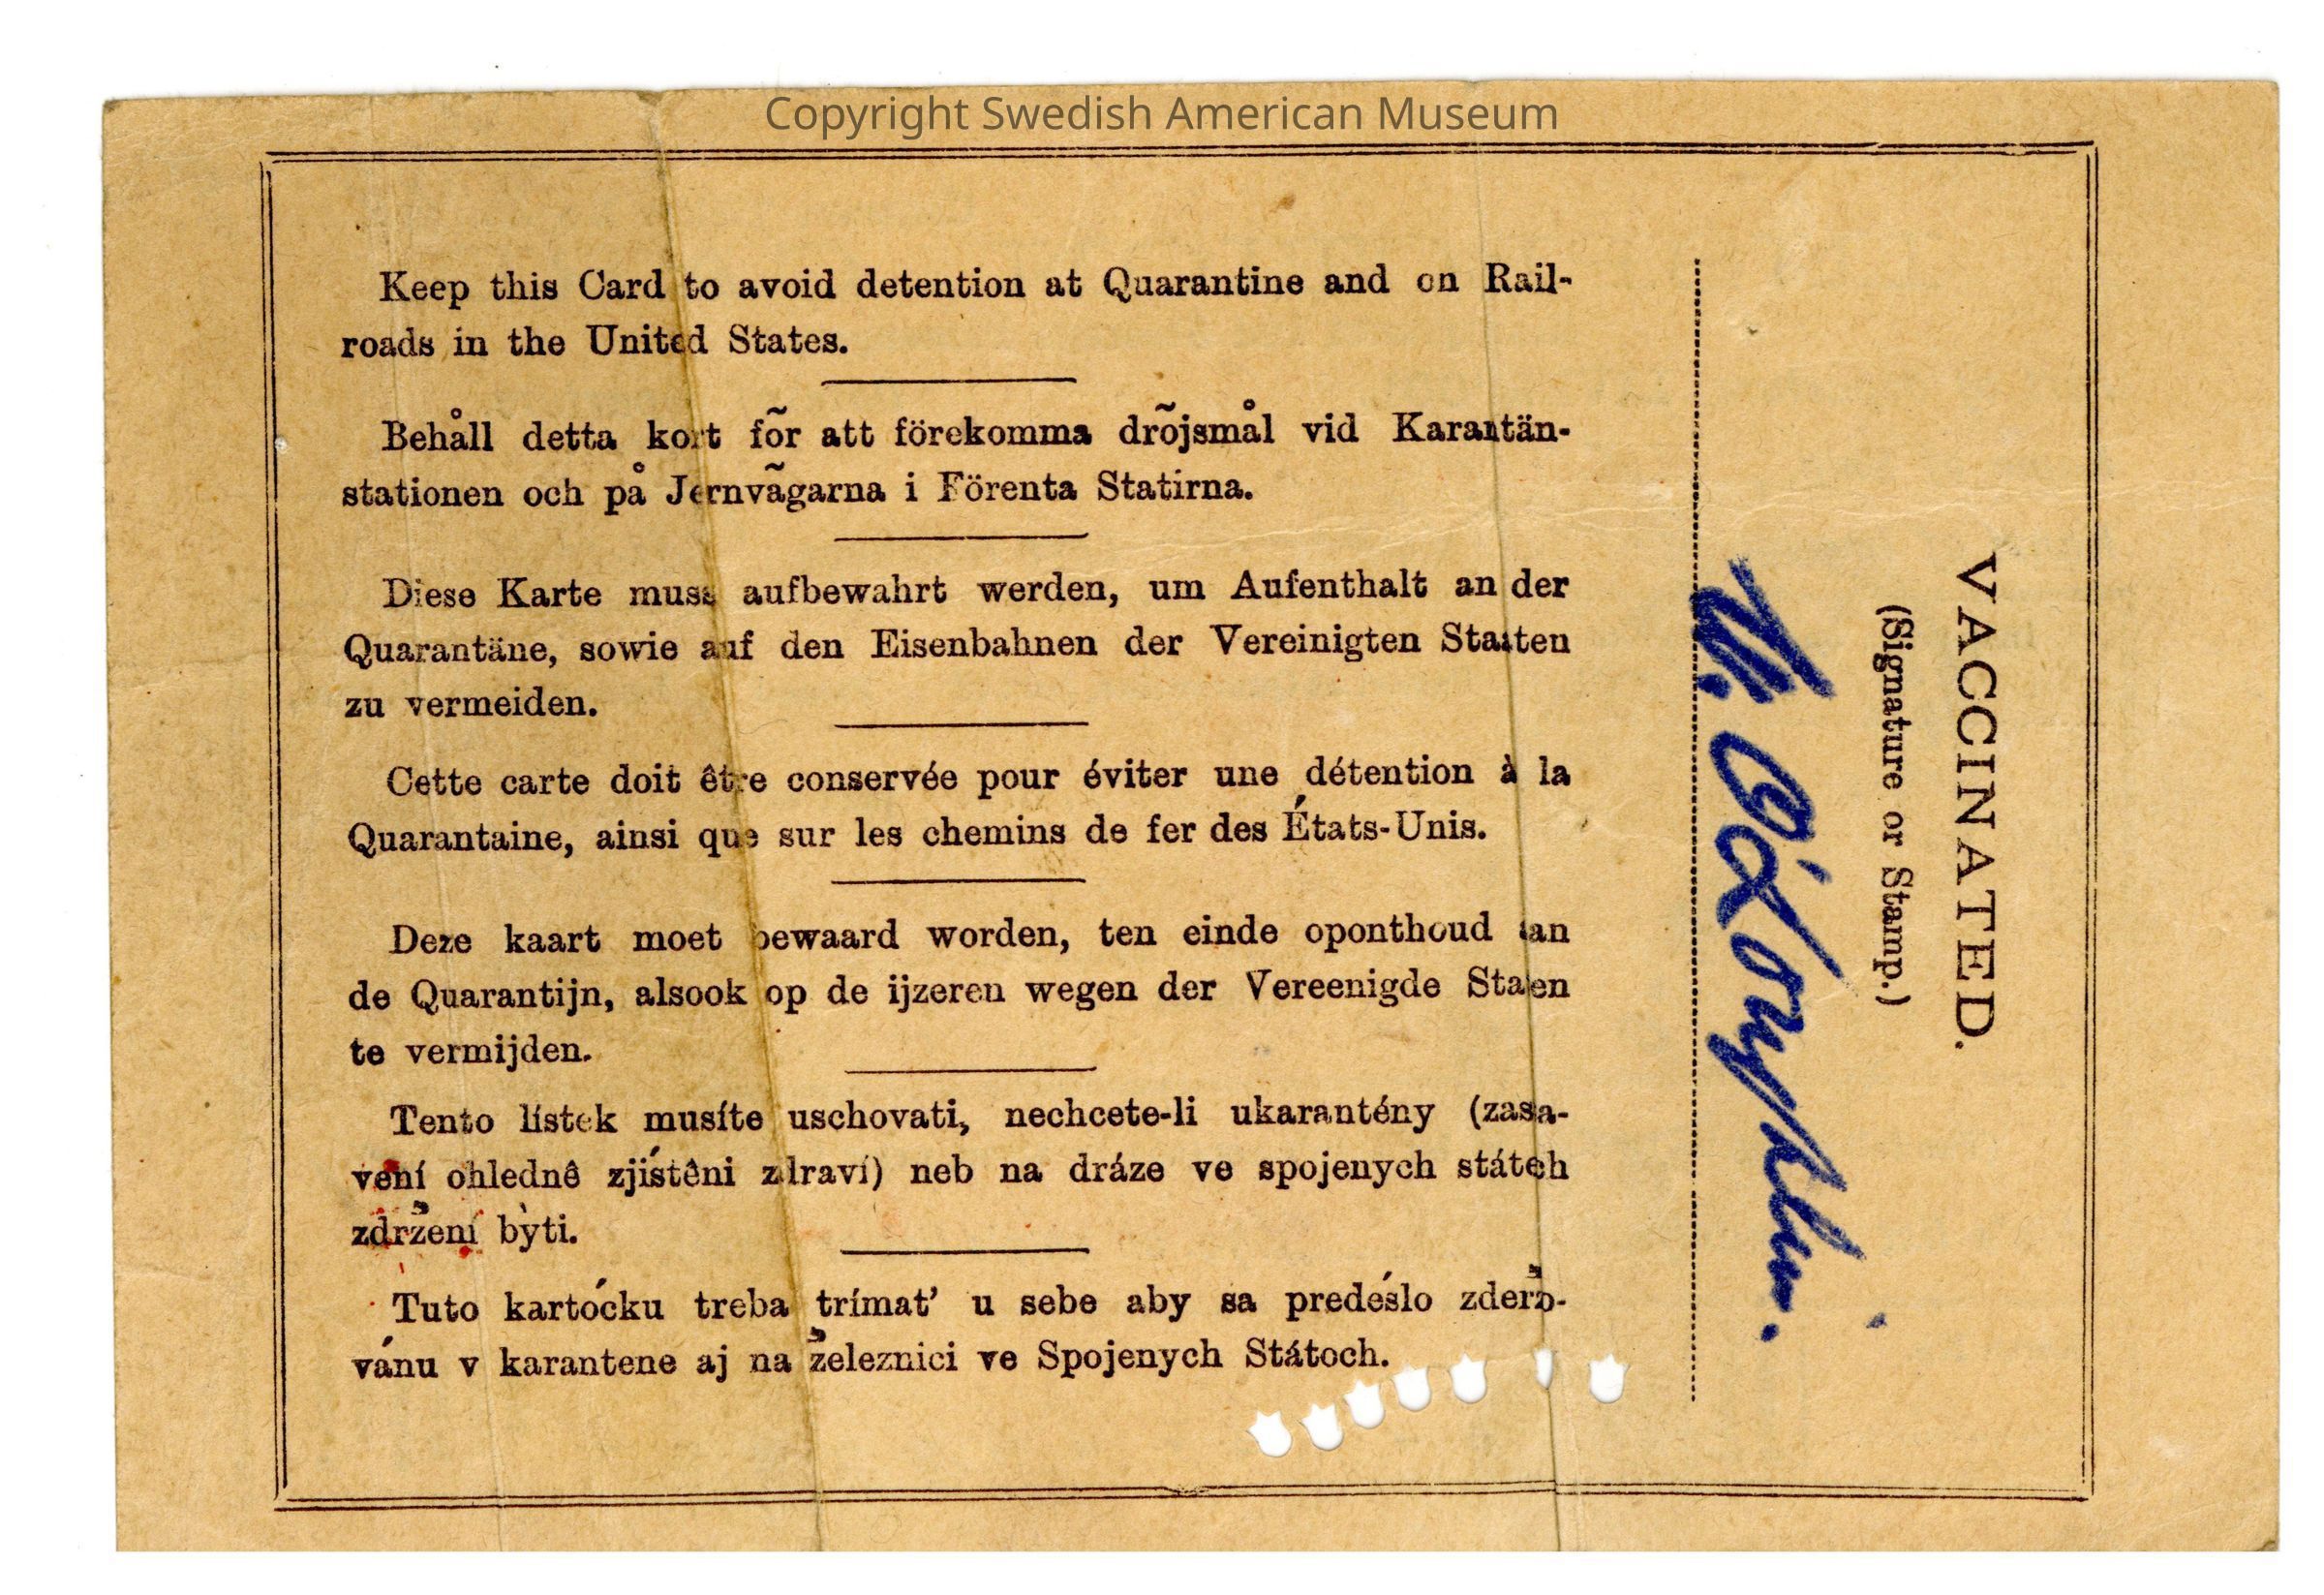 Copyright Swedish American Museum
Keep this Card to avoid detention at Quarantine and on Rail-
roads in the United States.
Behåll detta kort fõr att förekomma drõjsmål vid Karantän-
stationen och på Jernvãgarna i Förenta Statirna.
Diese Karte muss aufbewahrt werden, um Aufenthalt an der
Quarantäne, sowie auf den Eisenbahnen der Vereinigten Staaten
zu vermeiden.
Cette carte doit être conservée pour éviter une détention à la
Quarantaine, ainsi que sur les chemins de fer des États-Unis.
Deze kaart moet bewaard worden, ten einde oponthoud aan
de Quarantijn, alsook op de ijzeren wegen der Vereenigde Staten
te vermijden.
Tento lístek musíte uschovati, nechcete-li ukarantény (zasta-
vení ohlednê zjiśtêni zdraví) neb na dráze ve spojenych státech
zdržení bỳti.
Tuto kartoćku treba trímat’ u sebe aby sa predeślo zderžo-
vánu v karantene aj na železnici ve Spojenych Státoch.
VACCINATED.
(Signature or Stamp.)